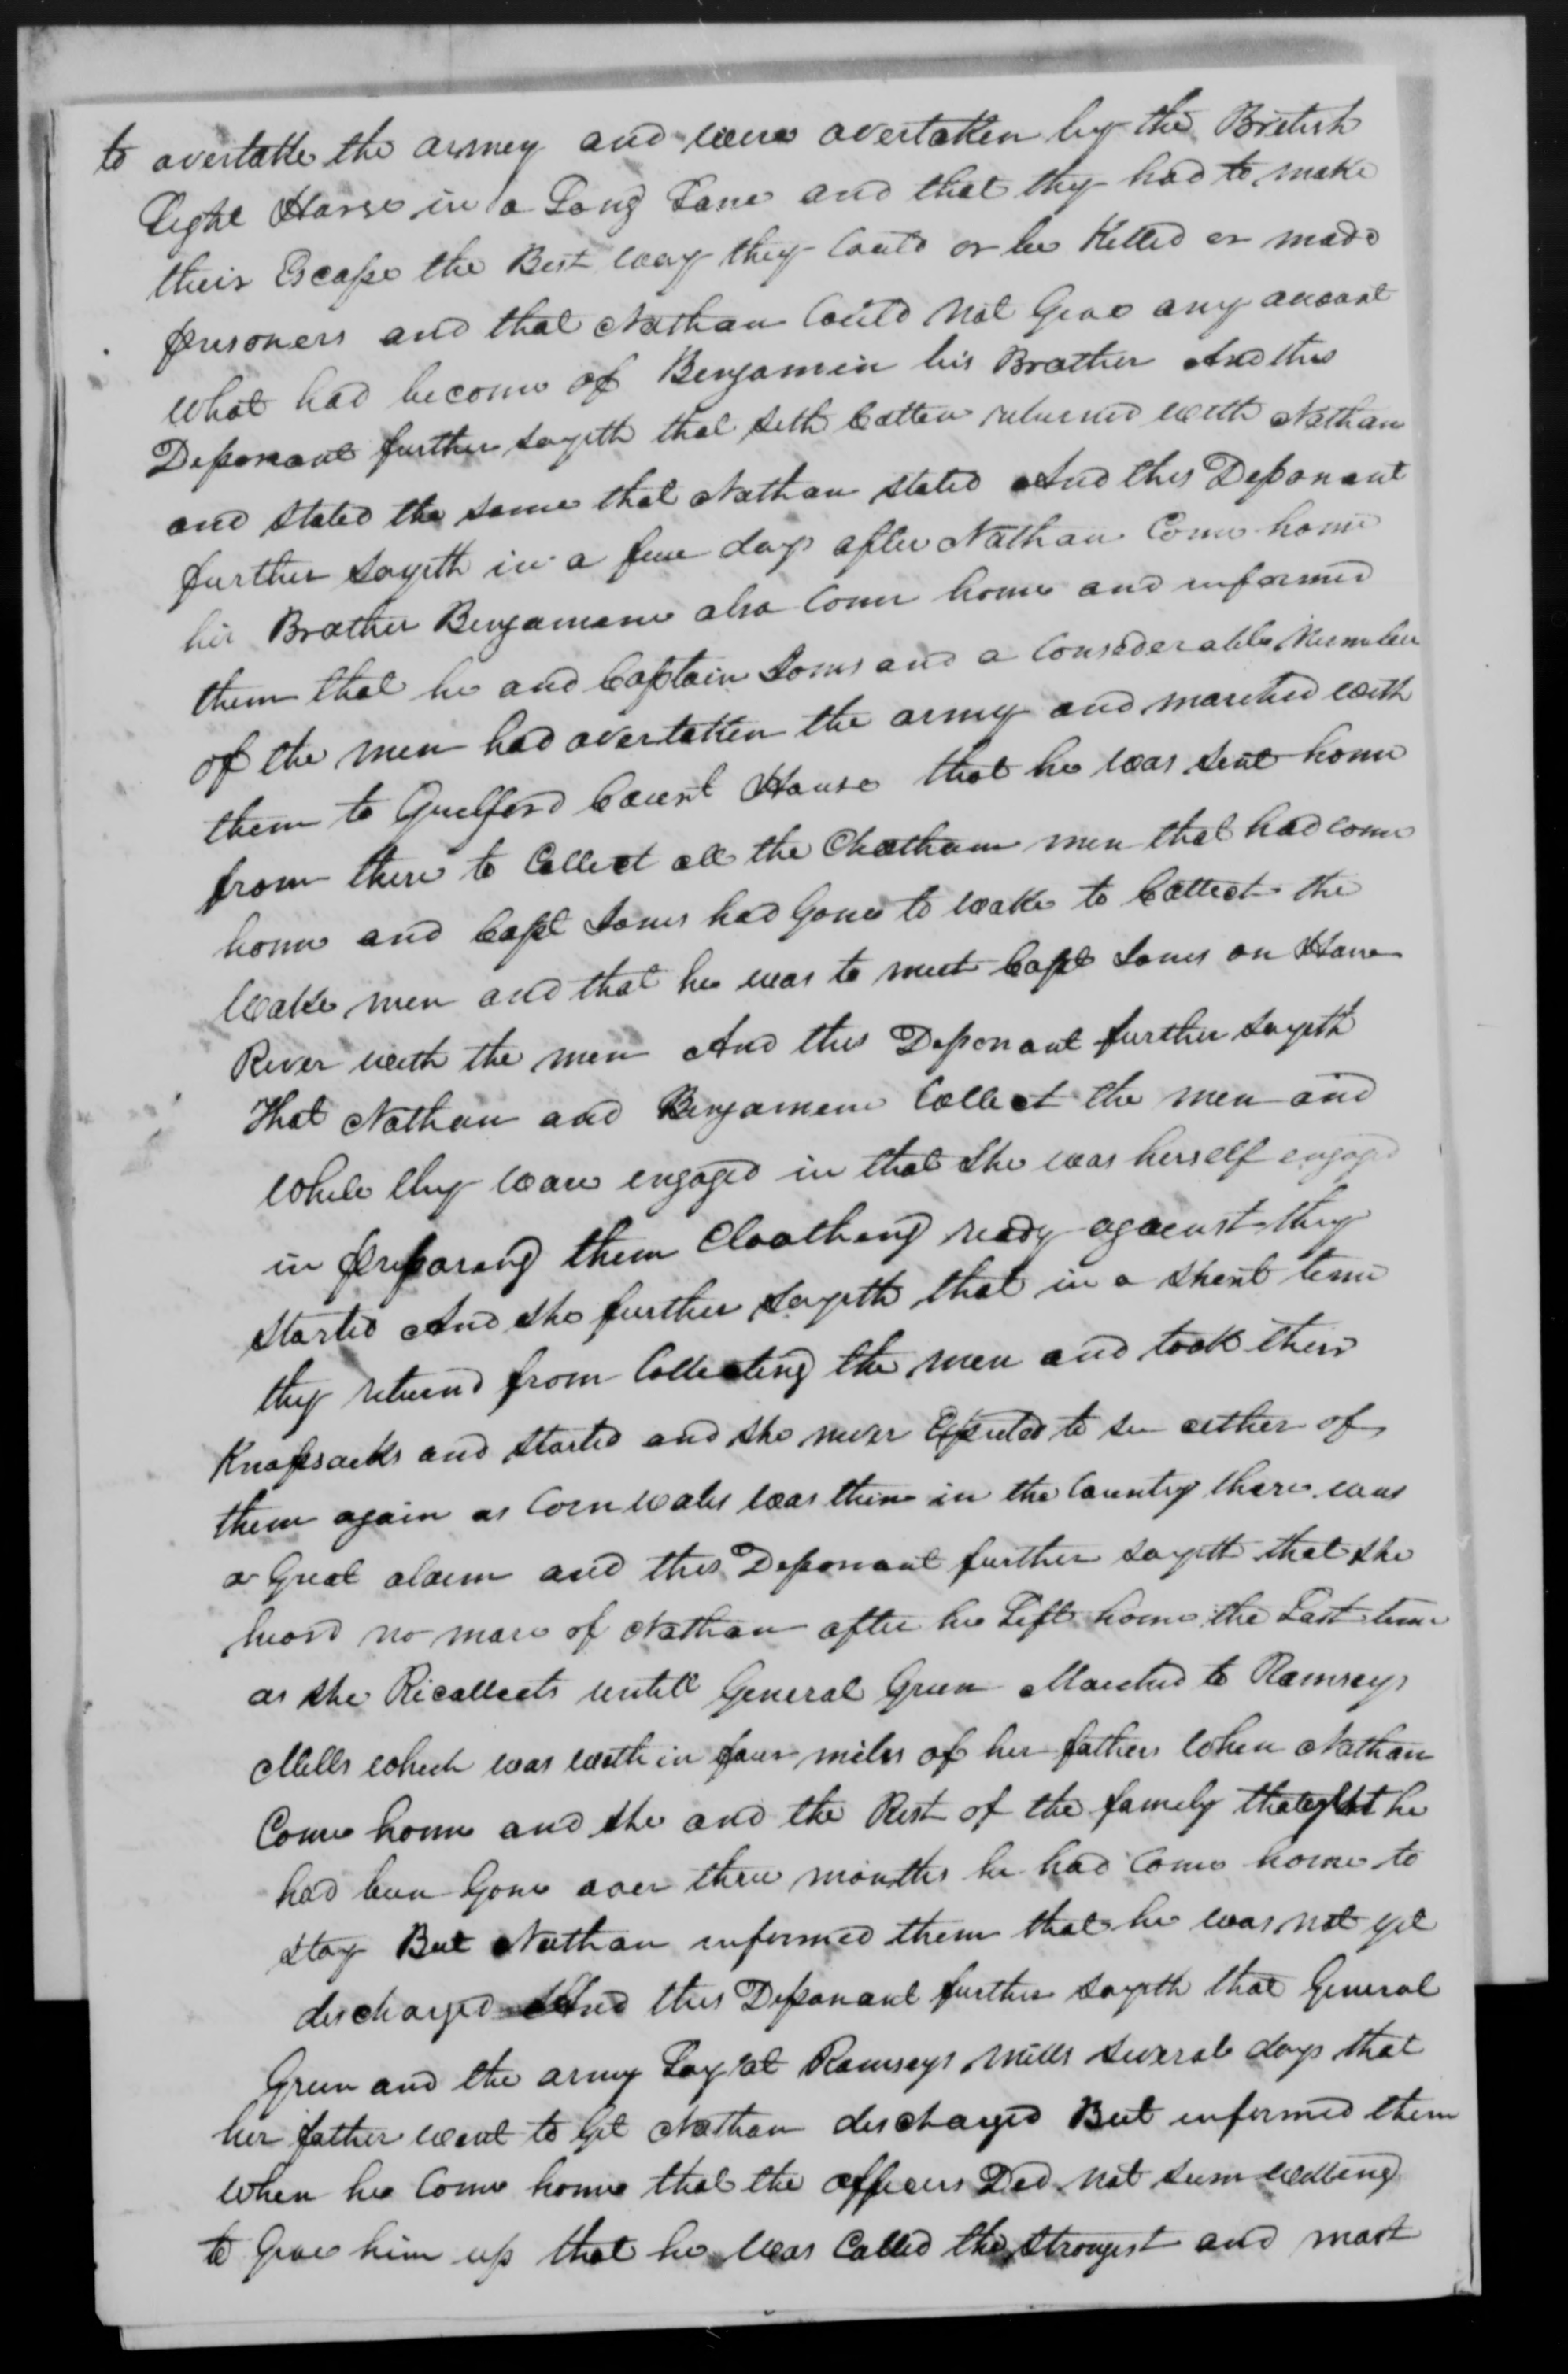 to overtake the armey and ware overtaken by the British
Light Harse in a Long Lane and that they had to make
their Escape the Best way they Could or be Killed or made
prisoners and that Nathan Could Not Give any account
what had become of Benjamin his Brother And this
Deponant further sayeth that Seth Catten returned with Nathan
and stated the same that Nathan stated And this Deponant
further sayeth in a few days after Nathan Come home
her Brother Benjamine also Come home and informed
them that he and Captain Jones and a Considerable Number
of the men had overtaken the army and marched with
them to Guilford Court House that he was sent home
from there to Collect all the Chatham men that had come
home and Capt Jones had Gone to wake to Collect the
Wake men and that he was to meet Capt Jones on Haw
River with the men And this Deponant further sayeth
That Nathan and Benjamine Collect the men and
while they ware engaged in that She was herself engaged
in preparing them Cloathing ready against they
started And she further sayeth that in a short time
they returnd from Collecting the men and took their
Knapsacks and started and she never Expected to see either of
them again as Cornwales was then in the Country there was
a Great alarm and this Deponant further sayeth that she
heard no more of Nathan after he Left home the Last time
as she Ricallects untill General Green Marched to Ramseys
Mills which was with in four miles of her fathers when Nathan
Come home and she and the Rest of the family thought he
had been Gone over three months he had Come home to
stay But Nathan informed them that he was not yet
discharged And this Deponant further sayeth that General
Green and the army Lay at Ramseys Mills several days that
her father went to Git Nathan discharged But informed them
when he Come home that the officers Did Not seem willing
to Give him up that he was Called the strongest and most